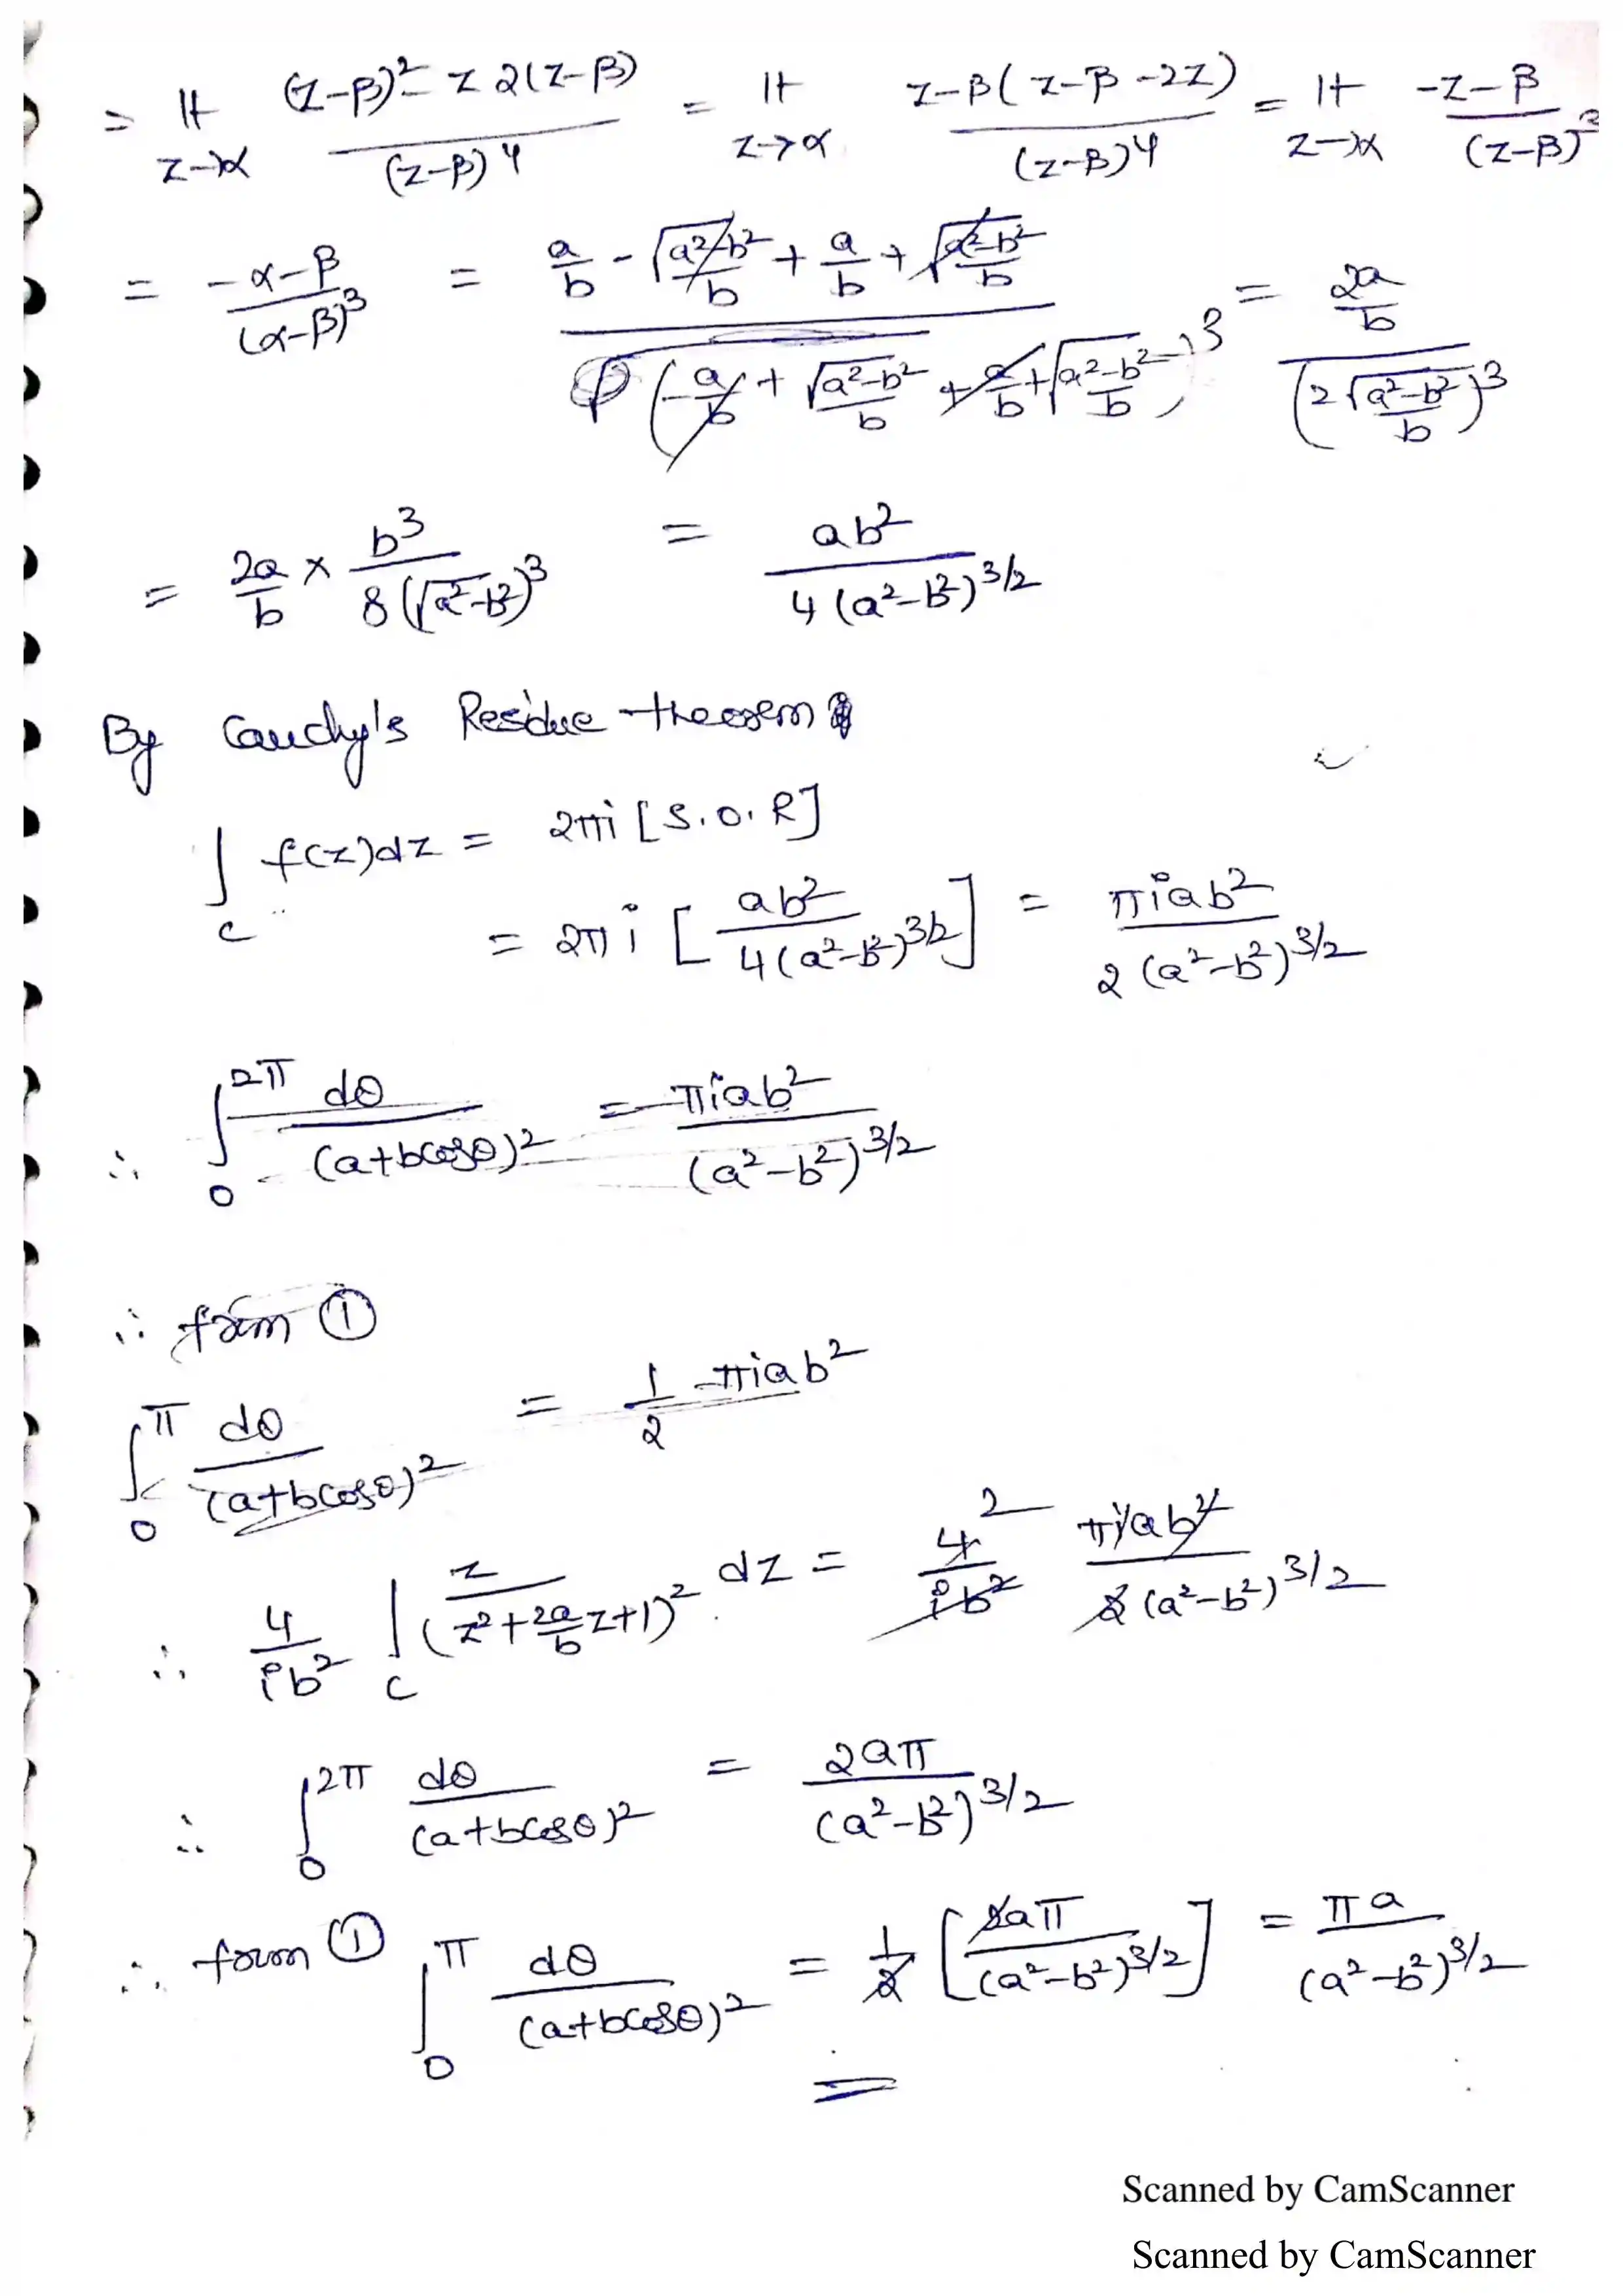 = lt z→α ((z-β)² - z 2(z-β))/(z-β)⁴ = lt z→α (z-β(z-β-2z))/(z-β)⁴ = lt z→α (-z-β)/(z-β)³
= (-α-β)/(α-β)³ = (a/b - √(a²-b²)/b + a/b + √(a²-b²)/b)/(-a/b + √(a²-b²)/b + a/b + √(a²-b²)/b)³ = (2a/b)/(2√(a²-b²)/b)³
= 2a/b × b³/(8(√(a²-b²))³) = ab²/(4(a²-b²)^(3/2))
By Cauchy's Residue theorem
∫_c f(z)dz = 2πi [S.O.R]
= 2πi [ab²/(4(a²-b²)^(3/2))] = πiab²/(2(a²-b²)^(3/2))
∴ ∫_0^2π dθ/(a+bcosθ)² = πiab²/(a²-b²)^(3/2)
∴ from ①
∫_0^π dθ/(a+bcosθ)² = 1/2 πiab²
∴ 4/(ib²) ∫_c z/(z²+(2a/b)z+1)² dz = 4/(ib²) πiab²/(2(a²-b²)^(3/2))
∴ ∫_0^2π dθ/(a+bcosθ)² = 2aπ/(a²-b²)^(3/2)
∴ form ① ∫_0^π dθ/(a+bcosθ)² = 1/2 [2aπ/(a²-b²)^(3/2)] = πa/(a²-b²)^(3/2)
Scanned by CamScanner
Scanned by CamScanner